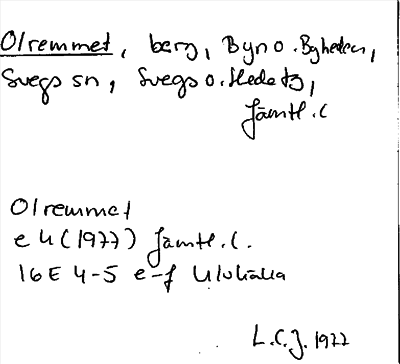 Olremmet, berg, Byn o. Bygheden,
Svegs sn, Svegs o. Hede tg,
Jämtl. l
Olremmet
e u (1977) Jämtl. l.
16E 4-5 e-f Ulvkälla
L.C.J. 1977